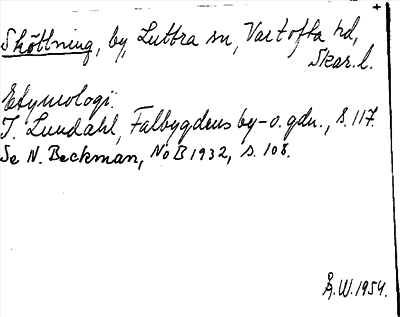 Sköttning, by, Luttra sn, Vartofta hd,
Skar. l.
Etymologi:
I. Lundahl, Falbygdens by- o. gdn., s. 117.
Se N. Beckman, NoB 1932, s. 108.
Å.W. 1954.